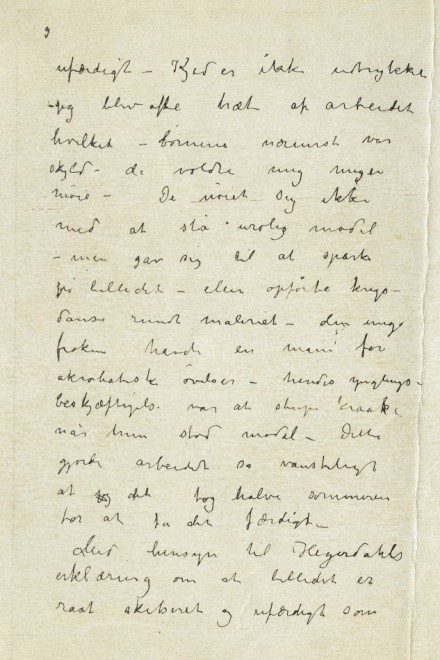 9
ufærdigt – Kjed er ikke udtrykket
– jeg blev ofte træt af arbeidet
hvilket – børnene nærmest var
skyld – de voldte mig megen
møie – De nøiet sig ikke
med at stå urolig model
– men gav sig til at spark
på billedet – eller opførte krigs-
danse rundt maleriet – den unge
frøken havde en mani for
akrobatisk øvelser – hendes ynglings-
beskjæftigels. var at
når hun stod model – Dette
gjorde arbeidet så vanskeligt
at det tog halve sommeren
for at få det færdigt –
hensyn til Heyerdahls
erklæring om at billedet er
raat skitseret og ufærdigt som